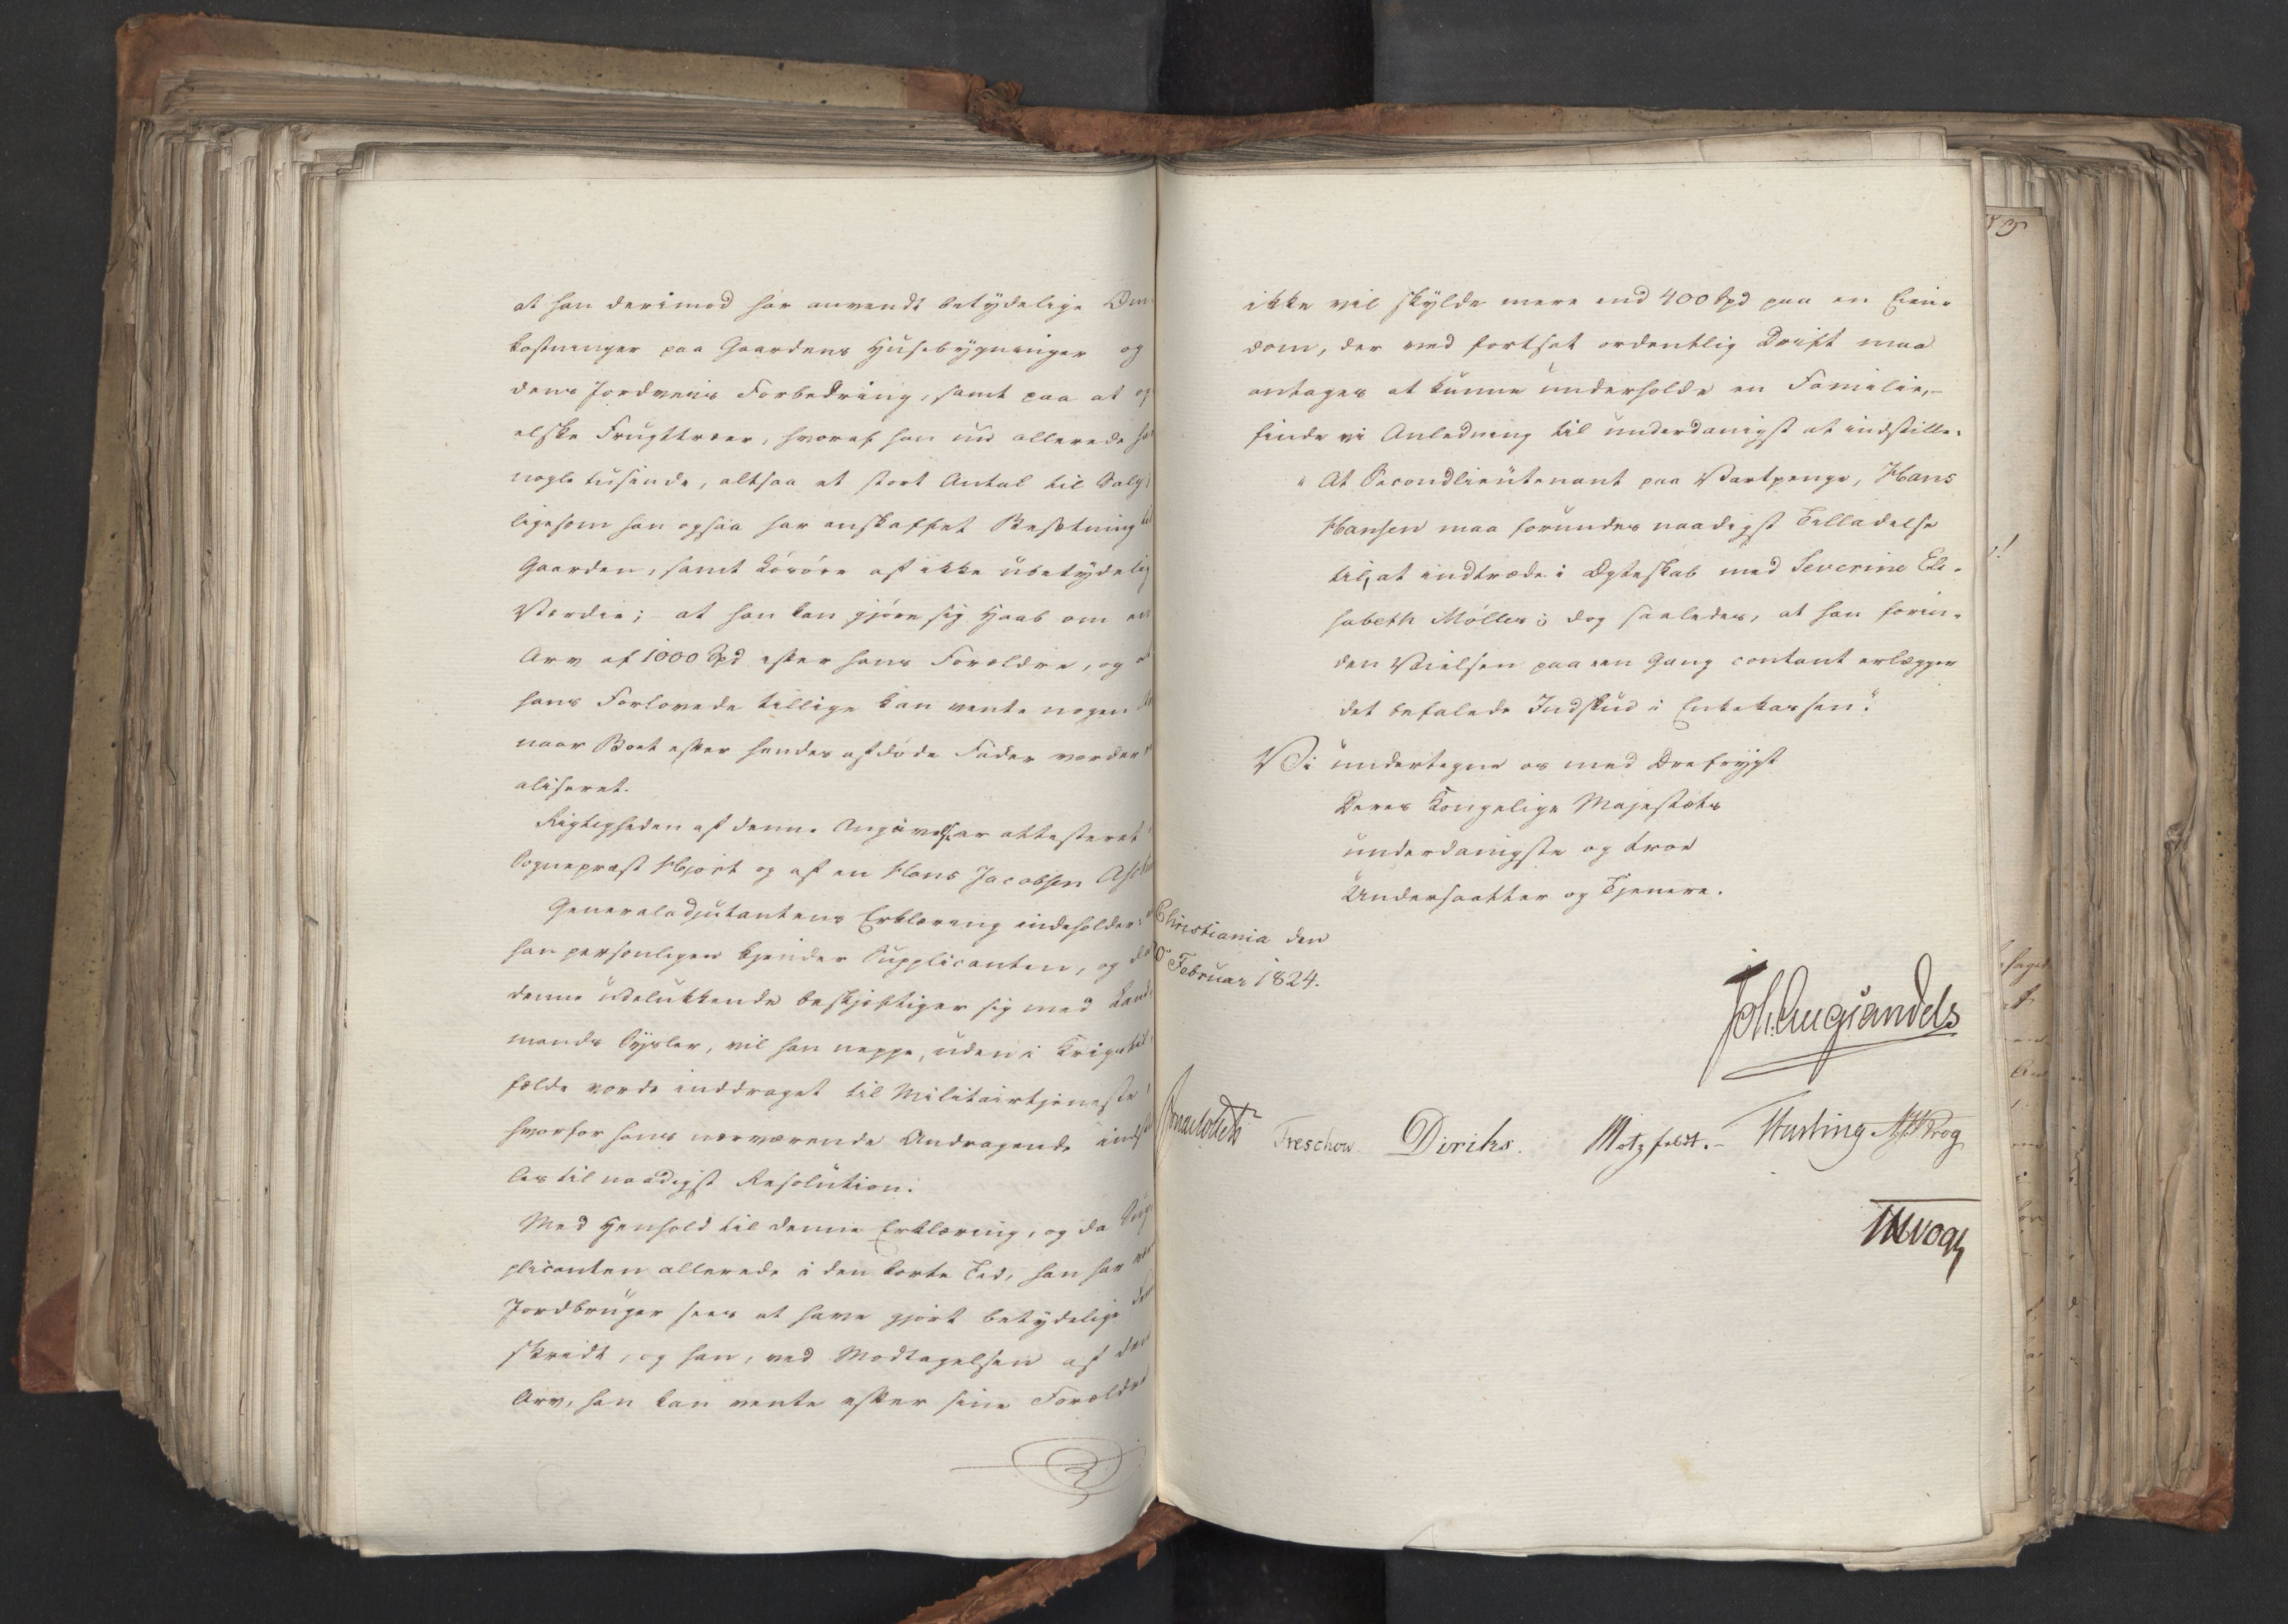 at han derimod har anvendt betydelige Om-
kostninger paa Gaardens Husebygninger og
dens Jordveis Forbedring, samt paa at op
elske Frugttræer, hvoraf han nu allerede har
nogle tusinde, altsaa et stort Antal til Salg,
ligesom han ogsaa har anskaffet Besætning til
Gaarden, samt Løsøre af ikke ubetydelig
Værdie; at han kan gjøre sig Haab om en
Arv af 1000 Spd efter hans Forældre, og at
hans Forlovede tillige kan vente nogen
naar Boet efter hendes afdøde Fader vorder
aliseret.
Rigtigheden af denne Angivelse er attesteret
Sognepræst Hjort og af en Hans Jacobsen
Generaladjutantens Erklæring indeholder:
han personligen kjender Supplicanten, og da
denne udelukkende beskjeftiger sig med Land-
mands Sysler, vil han neppe, uden i Krigstil-
fælde vorde inddraget til Militairtjeneste
hvorfor hans nærværende Andragende indstil
les til naadigst Resolution.
Med Henhold til denne Erklæring, og da Sup-
plicanten allerede i den korte Tid, han har været
Jordbruger sees at have gjort betydelige Frem
skridt, og han, ved Modtagelsen af den
Arv, han kan vente efter sine Forældre
ikke vil skylde mere end 400 Spd paa en Eien-
dom, der ved fortsat ordentlig Drift maa
antages at kunne underholde en Familie,-
finde vi Anledning til underdanigst at indstille:
"At Secondlieutenant paa Vartpenge, Hans
Hansen maa forundes naadigst Tilladelse
til, at indtræde i Ægteskab med Severine Eli-
sabeth Møller; dog saaledes, at han forin-
den Vielsen paa een Gang contant erlægger
det befalede Indskud i Enkekassen."
Vi undertegne os med Ærefrygt
Deres Kongelige Majestæts
underdanigste og troe
Undersaatter og Tjenere.
Christiania den
Februar 1824.
Joh. Aug Sandels
Treschow. Diriks. Motzfeldt.- Krog